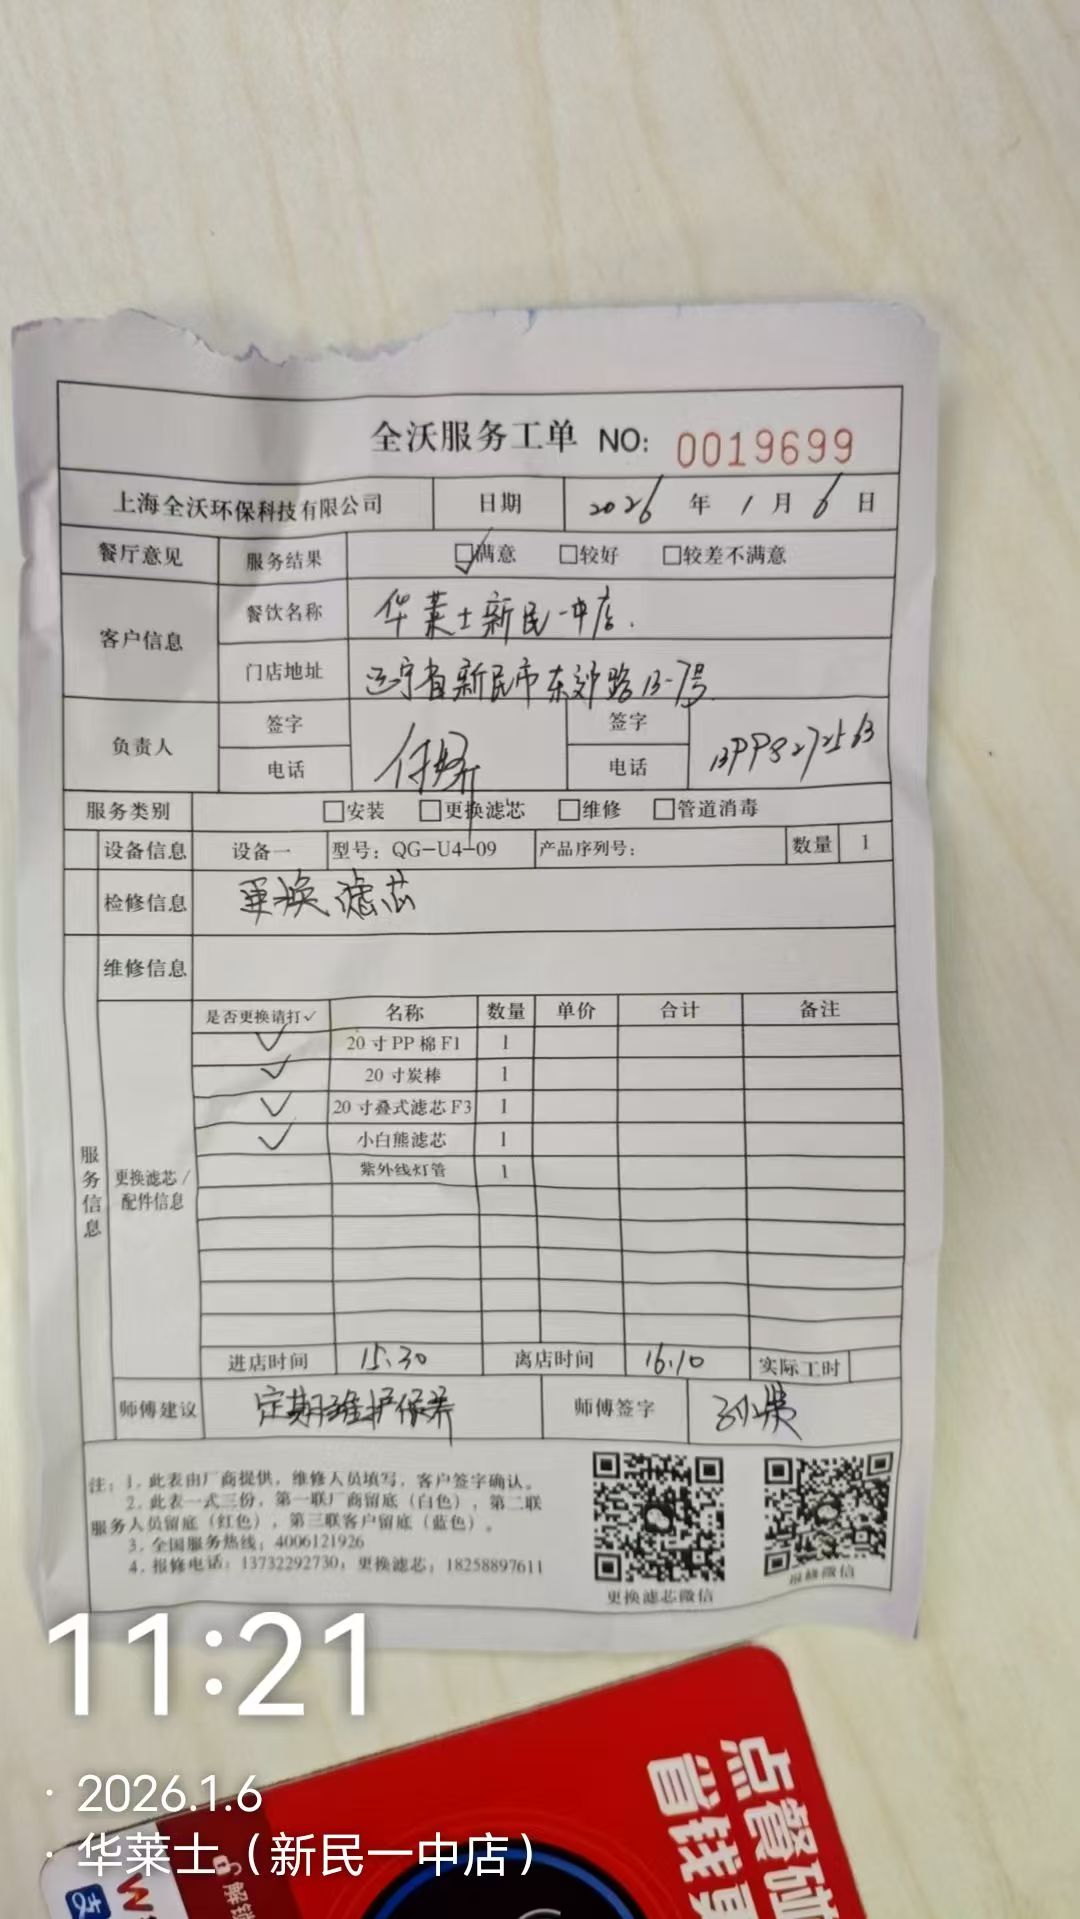 全沃服务工单 NO: 0019699
上海全沃环保科技有限公司 日期 2026年1月6日
餐厅意见 服务结果 ☑满意 □较好 □较差不满意
客户信息 餐饮名称 华莱士新民一中店.
门店地址 辽宁省新民市东郊路13-7号
负责人 签字 签字
电话 电话
服务类别 □安装 □更换滤芯 □维修 □管道消毒
设备信息 设备一 型号：QG-U4-09 产品序列号： 数量 1
检修信息 更换滤芯
维修信息
服务信息
更换滤芯/配件信息
是否更换请打✓ 名称 数量 单价 合计 备注
✓ 20寸PP棉F1 1
✓ 20寸炭棒 1
✓ 20寸叠式滤芯F3 1
✓ 小白熊滤芯 1
紫外线灯管 1
进店时间 15.30 离店时间 16.10 实际工时
师傅建议 定期维护保养 师傅签字
注：1. 此表由厂商提供，维修人员填写，客户签字确认。
2. 此表一式三份，第一联厂商留底（白色），第二联
服务人员留底（红色），第三联客户留底（蓝色）。
3. 全国服务热线：4006121926
4. 报修电话：13732292730；更换滤芯：18258897611
更换滤芯微信 报修微信
11:21
· 2026.1.6
· 华莱士（新民一中店）
点餐碰
省钱
解锁
支